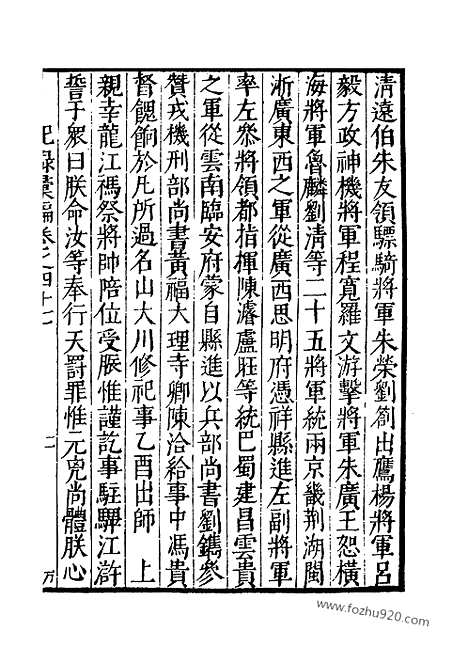 清遠伯朱友領驃騎將軍朱榮劉劄出鷹楊將軍呂
毅方政神機將軍程寬羅文游擊將軍朱廣王恕橫
海將軍魯麟劉清等二十五將軍統兩京畿荆湖閩
浙廣東西之軍從廣西思明府憑祥縣進左副將軍
率左叅將領都指揮陳濬盧旺等統巴蜀建昌雲貴
之軍從雲南臨安府蒙自縣進以兵部尚書劉儁叅
贊戎機刑部尚書黃福大理寺卿陳洽給事中馮貴
督餽餉於凡所過名山大川修祀事乙酉出師　上
親幸龍江禡祭將帥陪位受脤惟謹訖事駐驆江滸
誓于眾曰朕命汝等奉行天罰罪惟元兇尚體朕心
紀録彙編卷之四十七
二
万
www.fozhu920.com